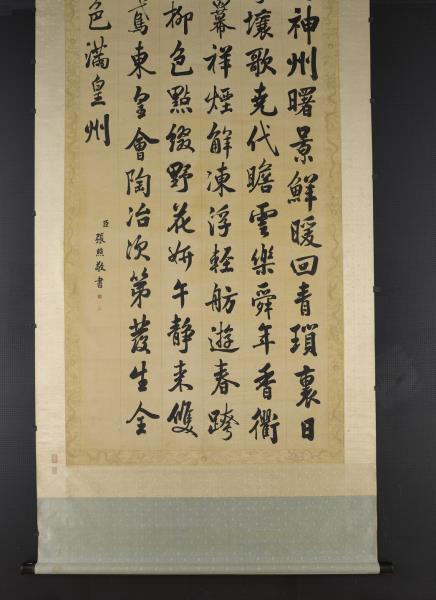 神州曙景鮮暖回青瑣裏日
壤歌堯代瞻雲樂舜年香衢
祥煙解凍浮輕舫遊春跨
柳色點綴野花妍午靜來雙
東皇會陶冶次第發生全
色滿皇州
臣張照敬書